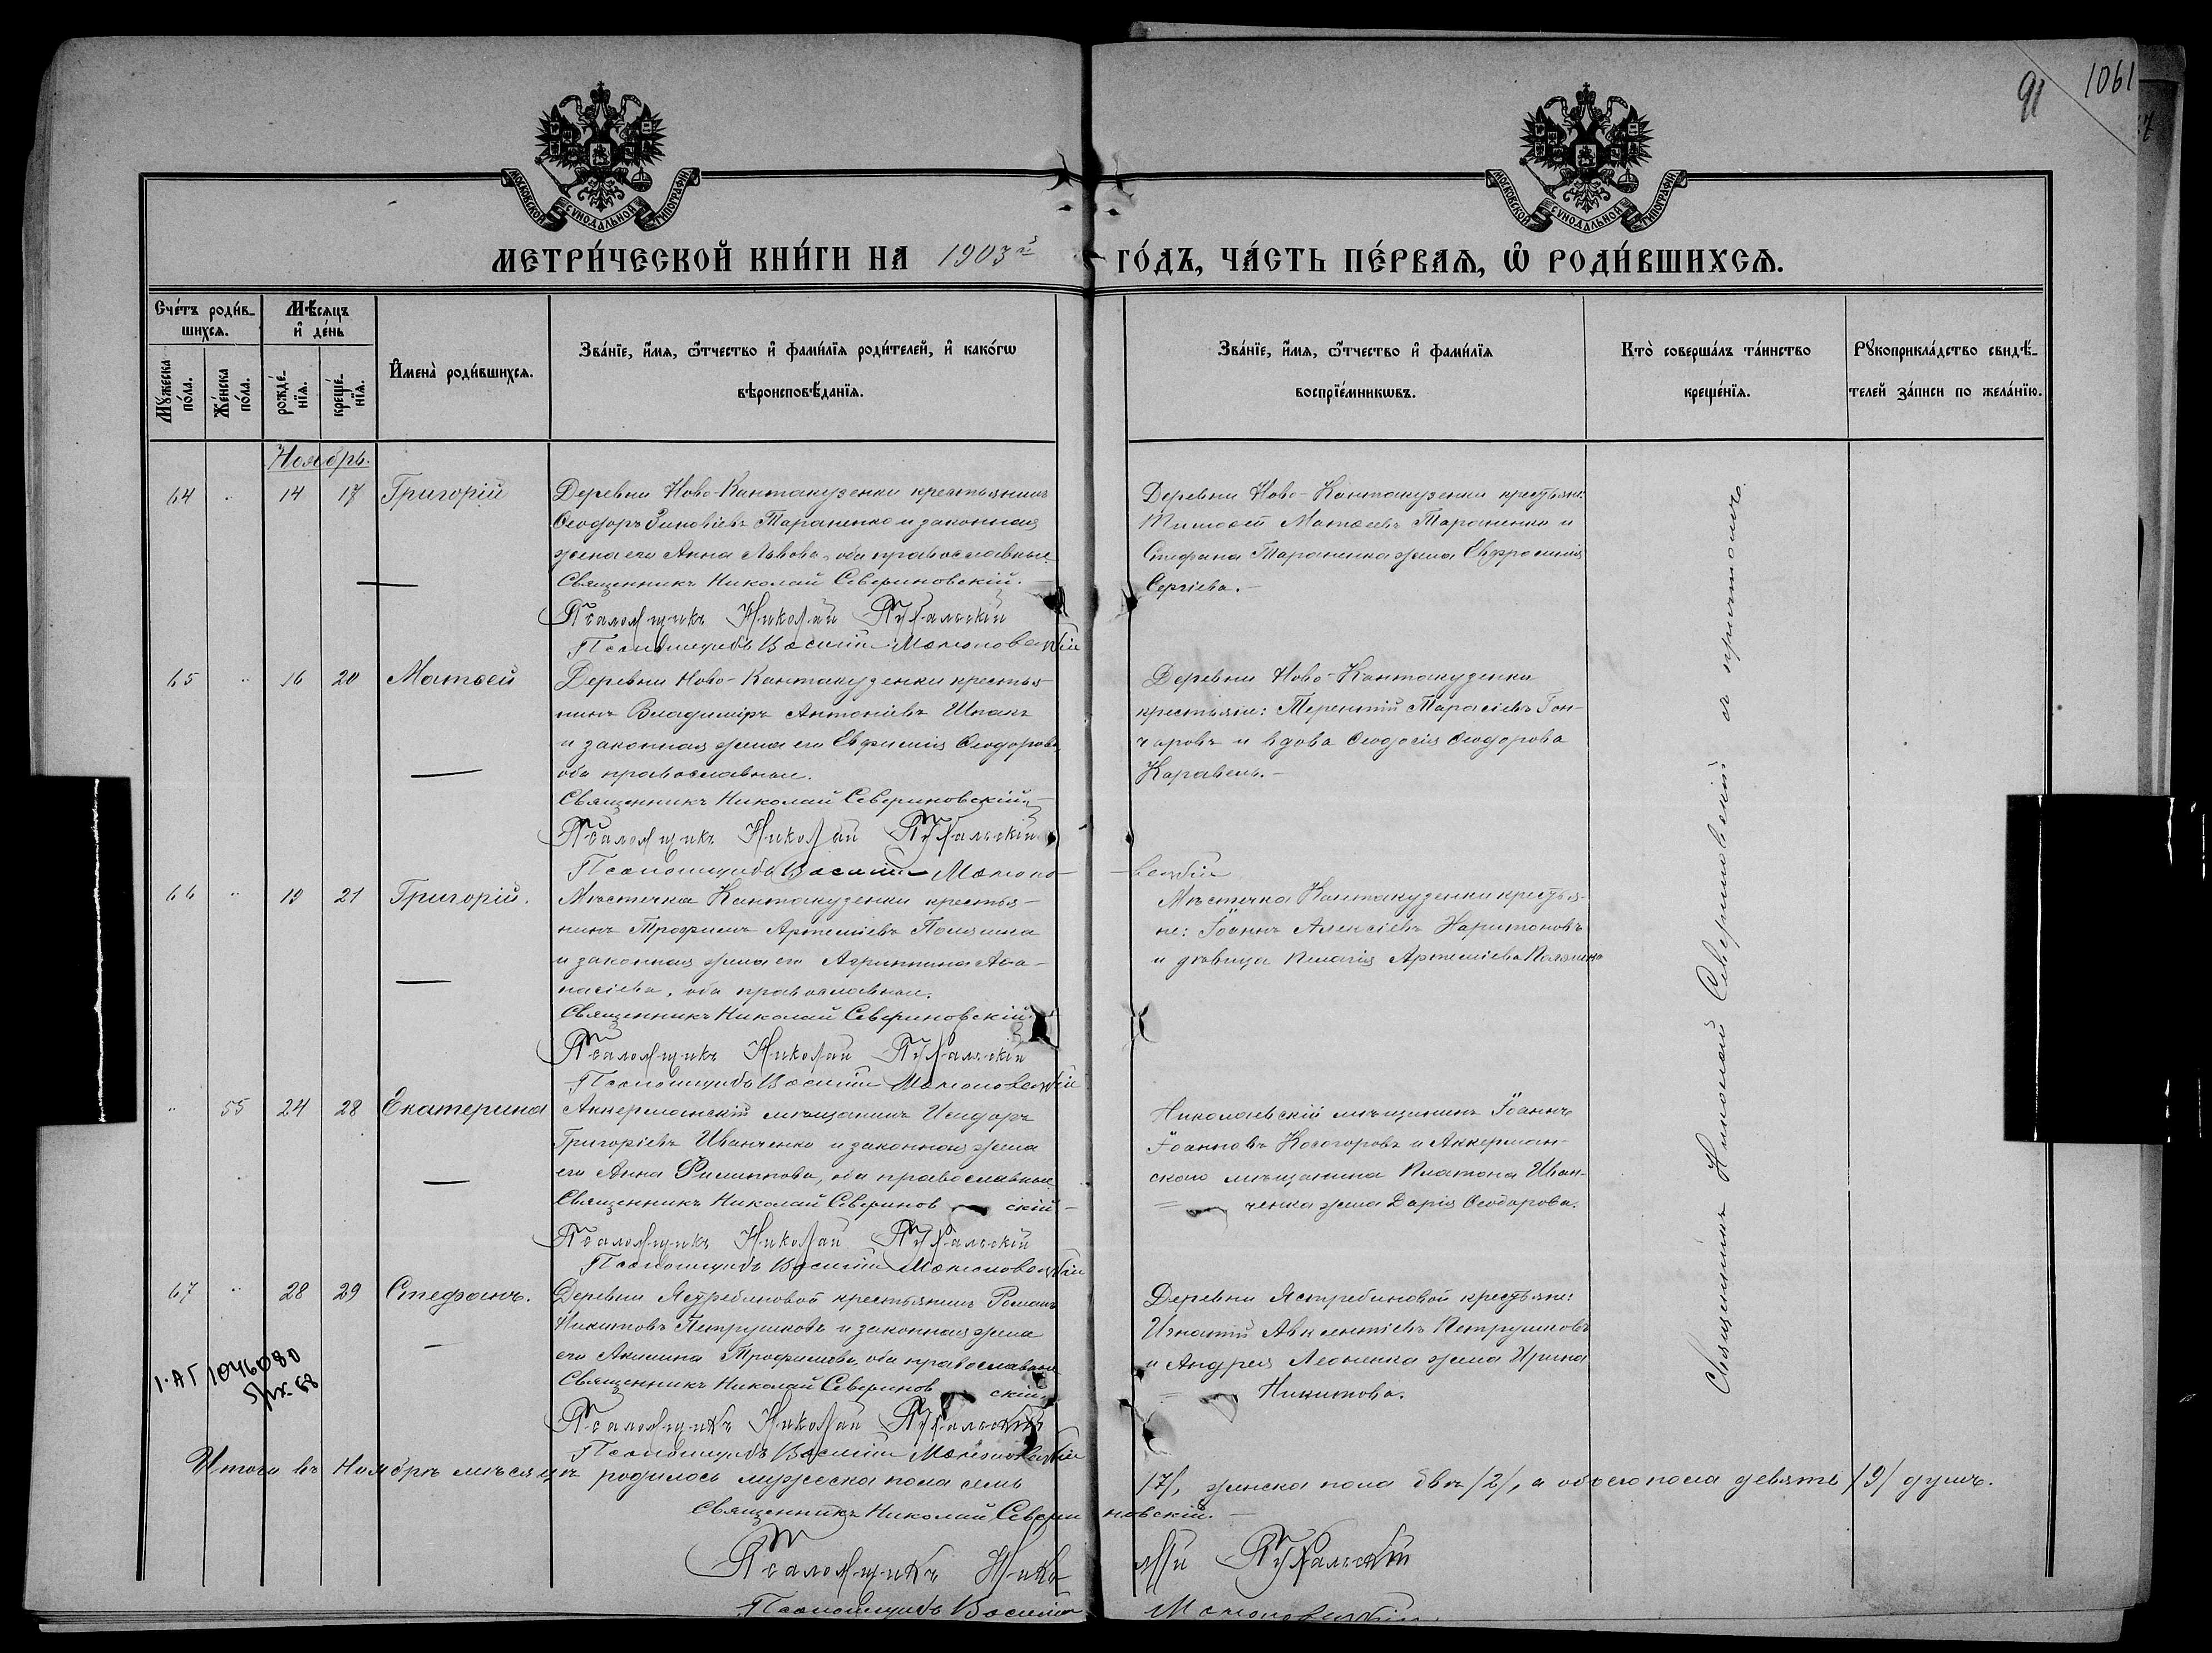 91
1061
МОСКОВСКОЙ СѴНОДАЛЬНОЙ ТИПОГРАФІИ
МОСКОВСКОЙ СѴНОДАЛЬНОЙ ТИПОГРАФІИ
МЕТРИ́ЧЕСКОЙ КНИ́ГИ НА 1903й ГО́ДЪ, ЧА́СТЬ ПЕ́РВАѦ, Ѡ҆ РОДИ́ВШИХСѦ.
Сче́тъ роди́в-
шихсѧ.
Мѣ́сѧцъ
и҆ де́нь
Мꙋ́жеска
по́ла.
Же́нска
по́ла.
рожде́-
нїѧ.
креще́-
нїѧ.
И҆мена̀ роди́вшихсѧ.
Зва́нїе, и҆́мѧ, ѻ҆́тчество и҆ фами́лїѧ роди́телей, и҆ како́гѡ
вѣроисповѣ́данїѧ.
Зва́нїе, и҆́мѧ, ѻ҆́тчество и҆ фами́лїѧ
воспрїе́мникѡвъ.
Кто̀ соверша́лъ та́инство
креще́нїѧ.
Рꙋкоприкла́дство свидѣ́-
телей за́писи по жела́нїю.
Ноябрь.
64 " 14 17 Григорій
Деревни Ново-Кантакузенки крестьянинъ
Ѳеодоръ Зиновіевъ Тараненко и законная
жена его Анна Львова, оба православные.
Священникъ Николай Севериновскій.
Псаломщикъ Николай
Псаломщикъ Василій
Деревни Ново-Кантакузенки крестьяне:
Тимоѳей Матѳеевъ Тараненко и
Стефана Тараненка жена Евфросинія
Сергіева.-
65 " 16 20 Матѳей
Деревни Ново-Кантакузенки крестья-
нинъ Владиміръ Антоніевъ Шпакъ
и законная жена его Евфимія Ѳеодорова,
оба православные.
Священникъ Николай Севериновскій
Псаломщикъ Николай
Псаломщикъ Василій
Деревни Ново-Кантакузенки
крестьяне: Терентій Тарасіевъ Гон-
чаровъ и вдова Ѳеодосія Ѳеодорова
Каравень.-
66 " 19 21 Григорій.
Мѣстечка Кантакузенки крестья-
нинъ Трофимъ Артеміевъ Полянка
и законная жена его Агриппина Аѳа-
насіева, оба православные.
Священникъ Николай Севериновскій.
Псаломщикъ Николай
Псаломщикъ Василій
Мѣстечка Кантакузенки крестья-
не: Іоаннъ Алексіевъ Харитоновъ
и дѣвица Пелагія Артеміева
" 55 24 28 Екатерина
Аккерманскій мѣщанинъ Исидоръ
Григоріевъ Иванченко и законная жена
его Анна Филиппова, оба православные
Священникъ Николай Севериновскій-
Псаломщикъ Николай
Псаломщикъ Василій
Николаевскій мѣщанинъ Іоаннъ
Іоанновъ Косогоровъ и Аккерман-
скаго мѣщанина Платона Иван-
= ченка жена Дарія Ѳеодорова.
67 " 28 29 Стефанъ.
Деревни Ястребиновой крестьянинъ Романъ
Никитовъ Петрушковъ и законная жена
его Акилина Трофимова, оба православные
Священникъ Николай Севериновскій
Псаломщикъ Николай
Псаломщикъ Василій
Деревни Ястребиновой крестьяне:
Игнатій Авксентіевъ Петрушковъ
и Андрея Леоненка жена Ирина
= Никитова.
Священникъ Николай Севериновскій съ причтомъ.
1·АГ 1046080
5/IX-68
Итого въ Ноябрѣ мѣсяцѣ родилось мужеска пола семь /7/, женска пола двѣ /2/, а обоего пола девять /9/ душъ.
Священникъ Николай Севериновскій.-
Псаломщикъ Николай
Псаломщикъ Василій